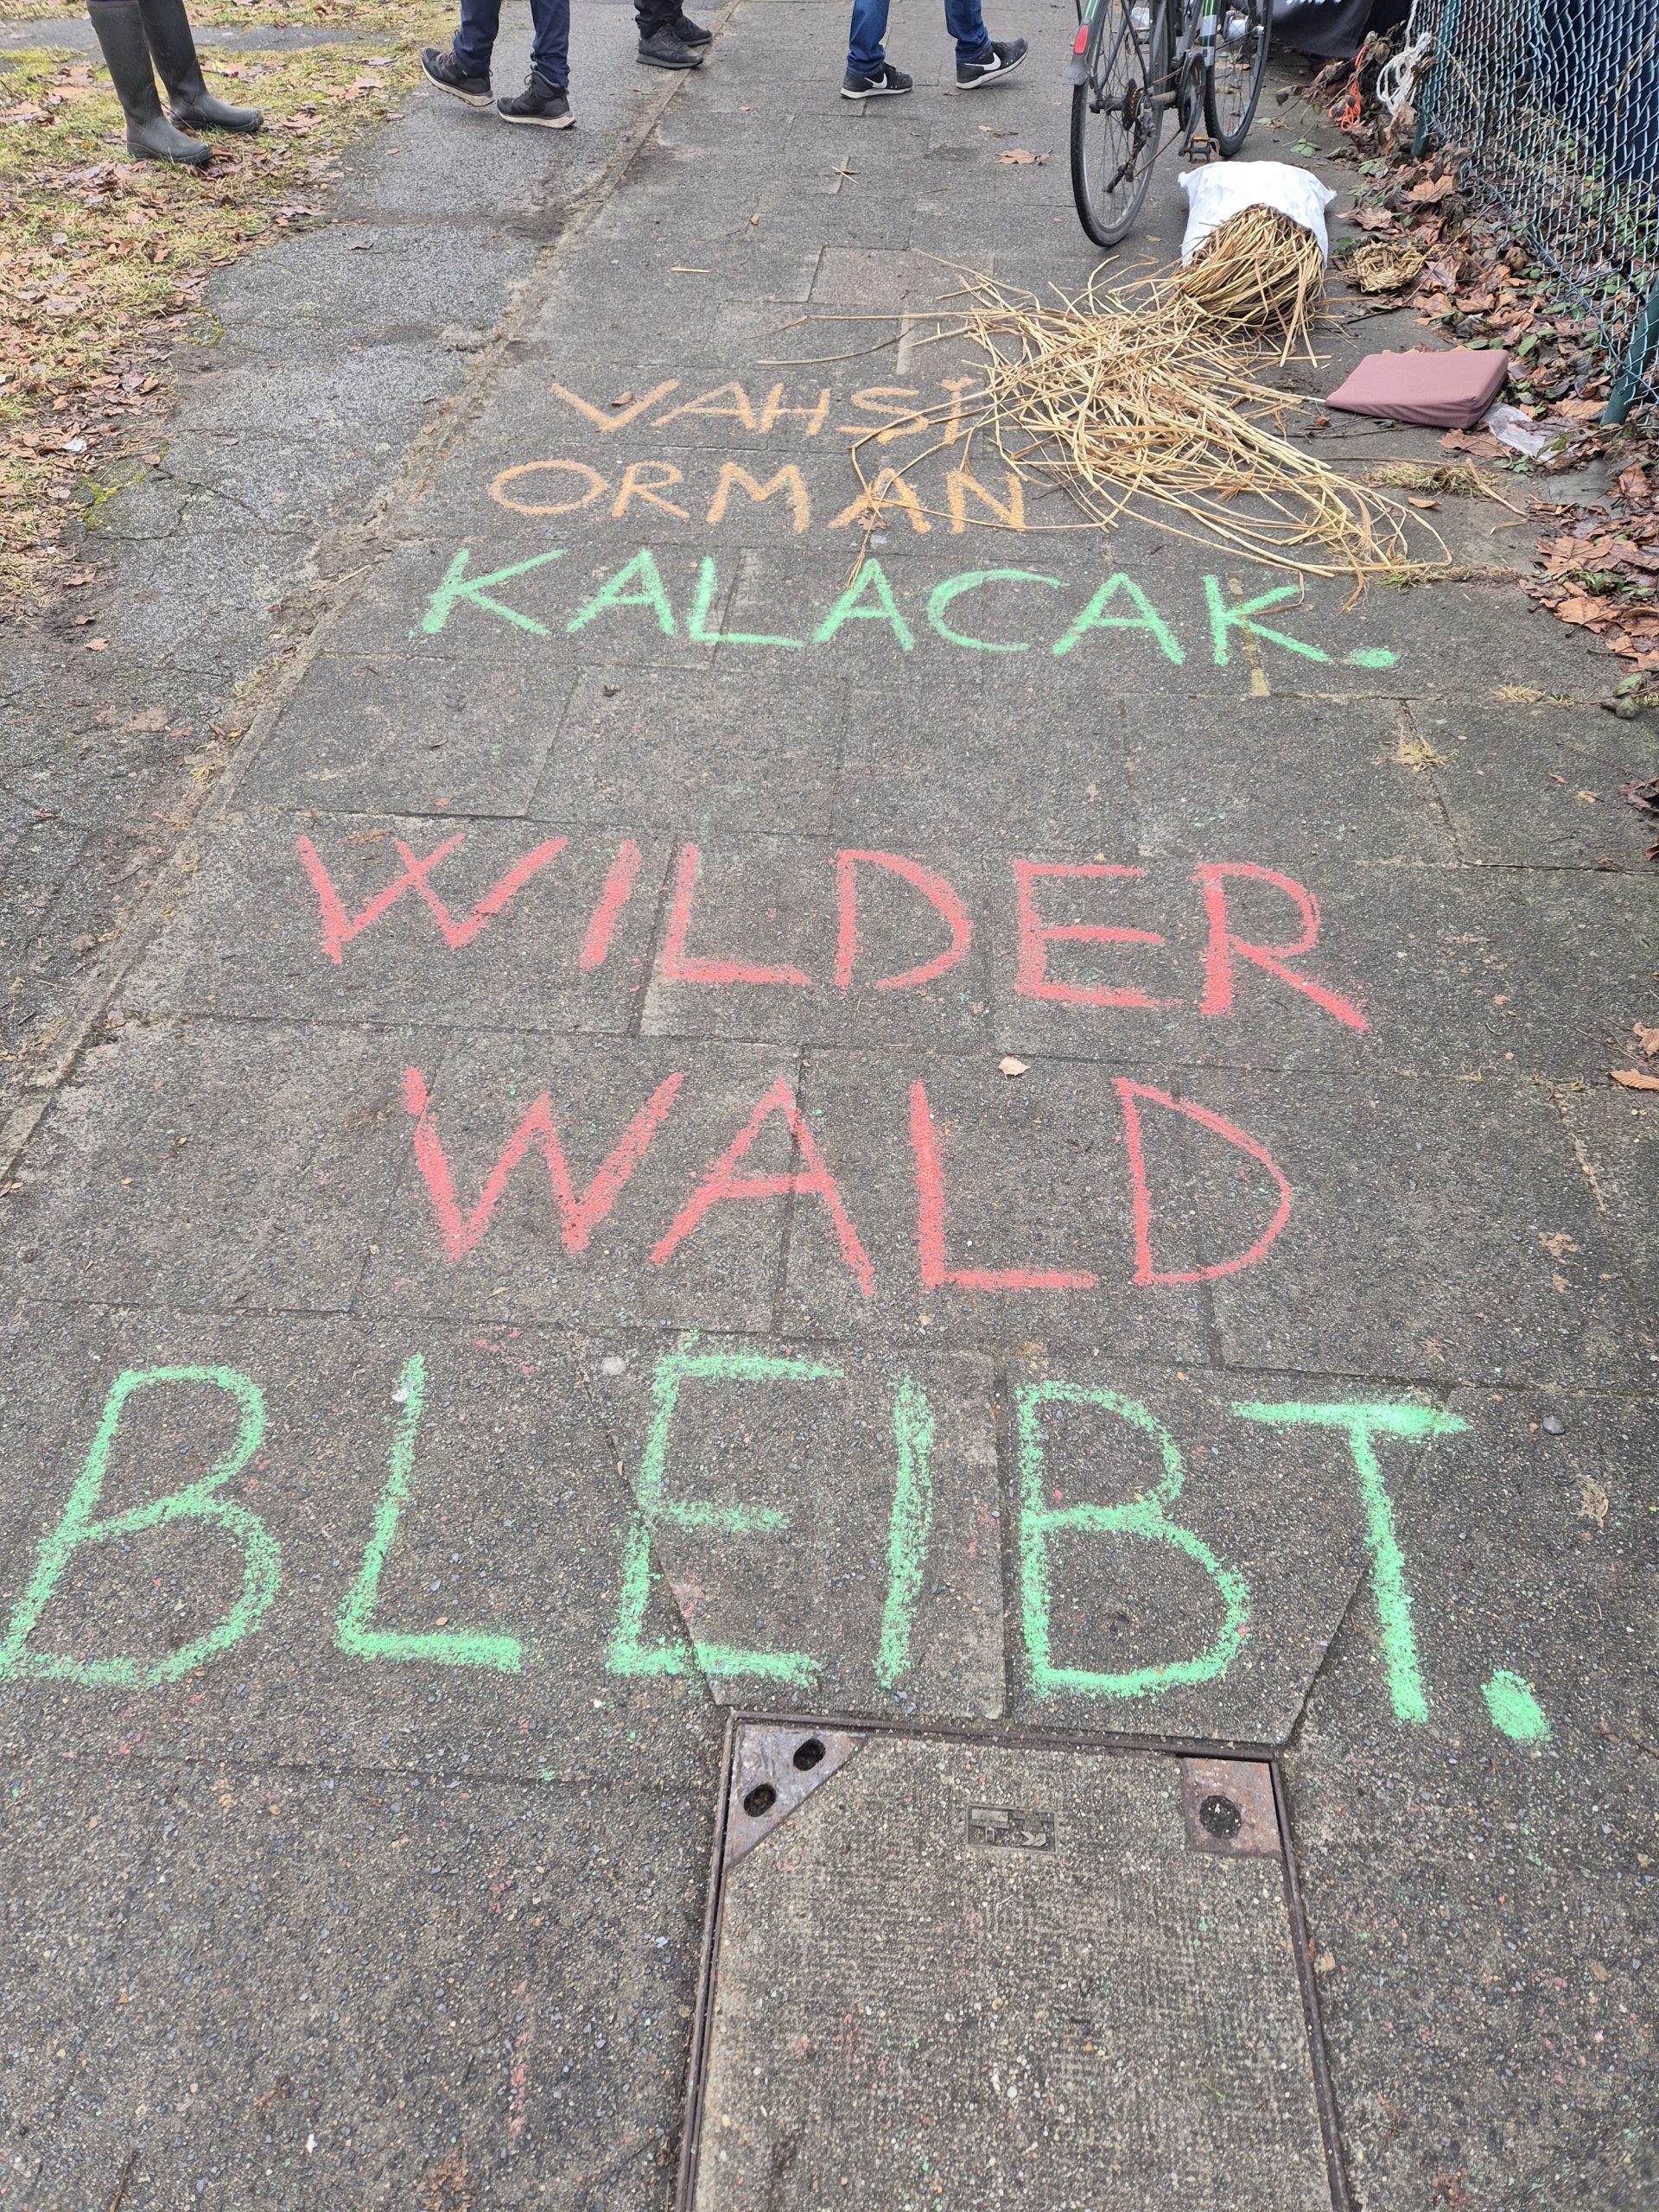 VAHSİ
ORMAN
KALACAK.
WILDER
WALD
BLEIBT.